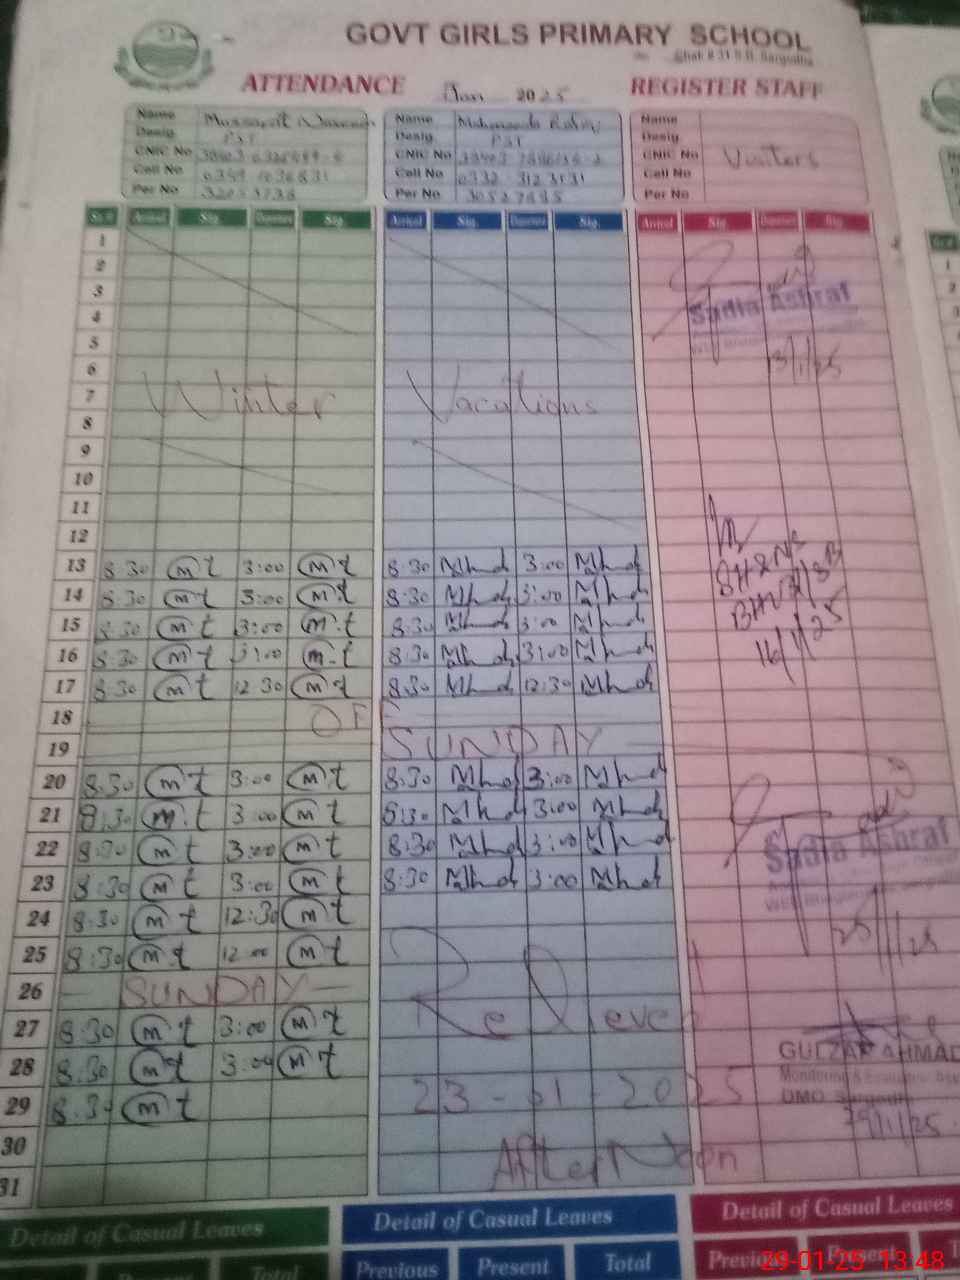 GOVT GIRLS PRIMARY SCHOOL
Chak # 31 S.B. Sargodha
ATTENDANCE Jan 2025 REGISTER STAFF
Name Name Mahmooda Name
Desig PST Desig PST Desig
CNIC No CNIC No CNIC No Visiters
Cell No Cell No 0332 3123131 Cell No
Per No Per No Per No
Sr.# Arrival Sig. Departure Sig. Arrival Sig. Departure Sig. Arrival Sig. Departure Sig.
1
2
3
4 Sadia Ashraf
5
6 13/1/25
7 Winter Vacations
8
9
10
11
12
13 8:30 mt 3:00 mt 8:30 Mhd 3:00 Mhd
14 8:30 mt 3:00 mt 8:30 Mhd 3:00 Mhd
15 8:30 mt 3:00 mt 8:30 Mhd 3:00 Mhd
16 8:30 mt 3:00 mt 8:30 Mhd 3:00 Mhd 16/1/25
17 8:30 mt 12:30 mt 8:30 Mhd 12:30 Mhd
18 OFF
19 SUNDAY
20 8:30 mt 3:00 mt 8:30 Mhd 3:00 Mhd
21 8:30 mt 3:00 mt 8:30 Mhd 3:00 Mhd
22 8:30 mt 3:00 mt 8:30 Mhd 3:00 Mhd Sadia Ashraf
23 8:30 mt 3:00 mt 8:30 Mhd 3:00 Mhd
24 8:30 mt 12:30 mt
25 8:30 mt 12:00 mt
26 SUNDAY
27 8:30 mt 3:00 mt Relieved
28 8:30 mt 3:00 mt GULZAR AHMAD
29 8:30 mt 23-01-2025 DMO Sargodha
30 29/1/25
31 After Noon
Detail of Casual Leaves Detail of Casual Leaves Detail of Casual Leaves
Present Total Previous Present Total Previous Present
29-01-25 13:48